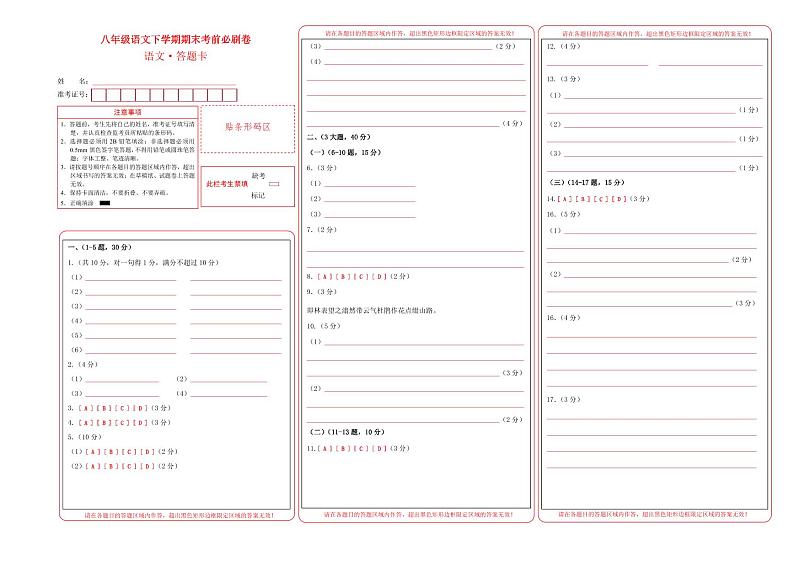 八年级语文下学期期末考前必刷卷
语文·答题卡
姓　　名：
准考证号：
注意事项
1．答题前，考生先将自己的姓名，准考证号填写清
楚，并认真检查监考员所粘贴的条形码。
2．选择题必须用2B铅笔填涂；非选择题必须用
0.5mm黑色签字笔答题，不得用铅笔或圆珠笔答
题；字体工整、笔迹清晰。
3．请按题号顺序在各题目的答题区域内作答，超出
区域书写的答案无效；在草稿纸、试题卷上答题
无效。
4．保持卡面清洁，不要折叠、不要弄破。
5．正确填涂
贴条形码区
此栏考生禁填
缺考
标记
一、(1-5题，30分)
1．(共10分，对一句得1分，满分不超过10分)
(1)
(2)
(3)
(4)
(5)
(6)
2．(4分)
(1) (2)
(3) (4)
3．[A][B][C][D](3分)
4．[A][B][C][D](3分)
5．(10分)
(1)[A][B][C][D](2分)
(2)[A][B][C][D](2分)
请在各题目的答题区域内作答，超出黑色矩形边框限定区域的答案无效！
请在各题目的答题区域内作答，超出黑色矩形边框限定区域的答案无效！
(3) (2分)
(4)
(4分)
二、(3大题，40分)
(一)(6-10题，15分)
6．(3分)
(1)
(2)
(3)
7．(2分)
8．[A][B][C][D](2分)
9．(3分)
即林表望之濸然带云气杜鹃作花点缀山路。
10．(5分)
(1)
(3分)
(2)
(2分)
(二)(11-13题，10分)
11．[A][B][C][D](3分)
请在各题目的答题区域内作答，超出黑色矩形边框限定区域的答案无效！
请在各题目的答题区域内作答，超出黑色矩形边框限定区域的答案无效！
12．(4分)
13．(3分)
(1)
(1分)
(2)
(1分)
(3) (1分)
(三)(14-17题，15分)
14．[A][B][C][D](3分)
16．(5分)
(1)
(2分)
(2)
(3分)
16．(4分)
17．(3分)
请在各题目的答题区域内作答，超出黑色矩形边框限定区域的答案无效！